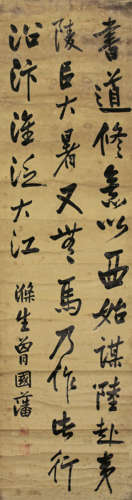 書道修意以西始謀陸赴夷
陵臣大暑又無馬乃作此行
沿汴淮泛大江
滌生曾國藩